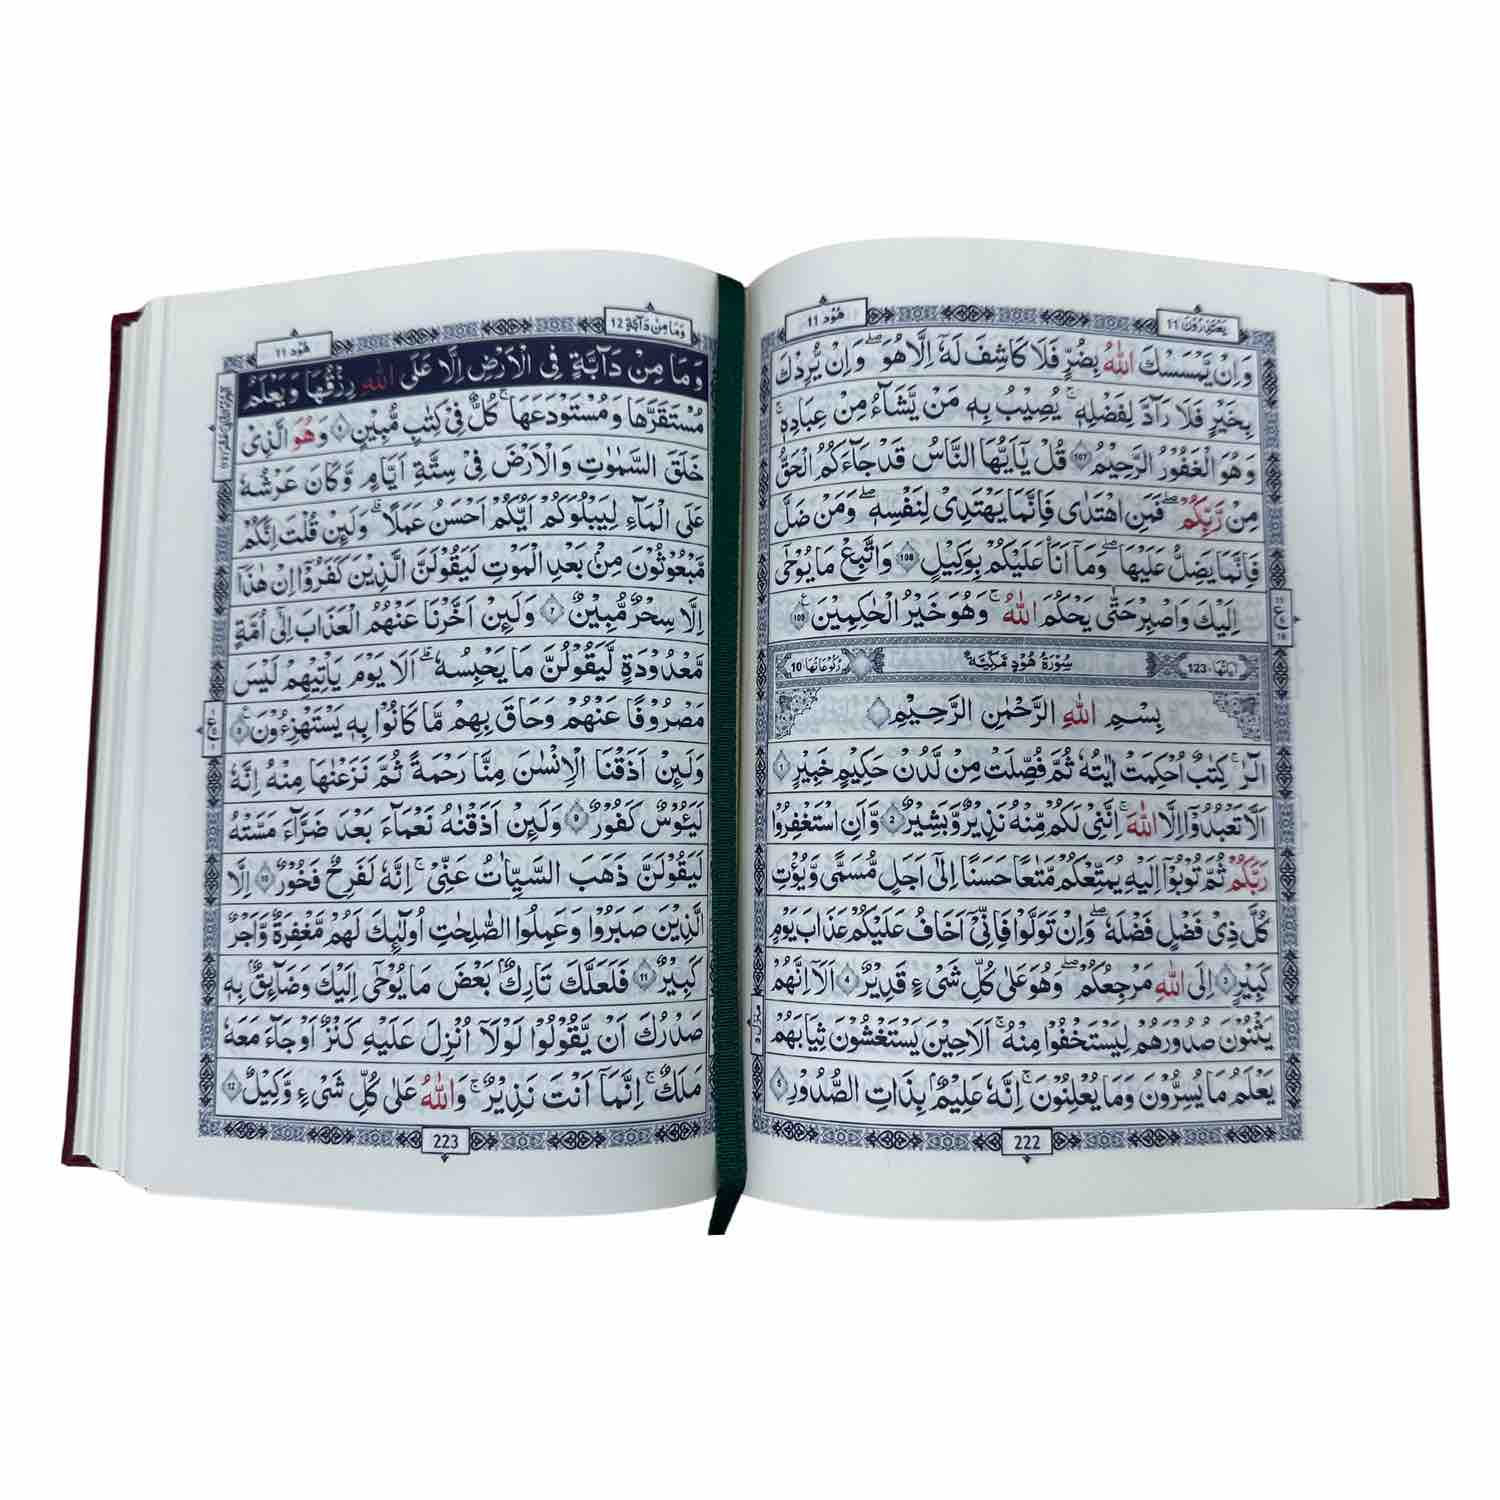 يَعْتَذِرُوْنَ 11
هُوْد 11
وَاِنْ يَّمْسَسْكَ اللّٰهُ بِضُرٍّ فَلَا كَاشِفَ لَهٗۤ اِلَّا هُوَ ۚ وَاِنْ يُّرِدْكَ
بِخَيْرٍ فَلَا رَآدَّ لِفَضْلِهٖ ؕ يُصِيْبُ بِهٖ مَنْ يَّشَآءُ مِنْ عِبَادِهٖ ؕ
وَهُوَ الْغَفُوْرُ الرَّحِيْمُ 107 قُلْ يٰۤاَيُّهَا النَّاسُ قَدْ جَآءَكُمُ الْحَقُّ
مِنْ رَّبِّكُمْ ۚ فَمَنِ اهْتَدٰى فَاِنَّمَا يَهْتَدِىْ لِنَفْسِهٖ ۚ وَمَنْ ضَلَّ
فَاِنَّمَا يَضِلُّ عَلَيْهَا ۚ وَمَاۤ اَنَا عَلَيْكُمْ بِوَكِيْلٍ 108 وَاتَّبِعْ مَا يُوْحٰۤى
اِلَيْكَ وَاصْبِرْ حَتّٰى يَحْكُمَ اللّٰهُ ۚ وَهُوَ خَيْرُ الْحٰكِمِيْنَ 109
اٰيَاتُهَا 123 سُوْرَةُ هُوْدٍ مَّكِّيَّةٌ رُكُوْعَاتُهَا 10
بِسْمِ اللّٰهِ الرَّحْمٰنِ الرَّحِيْمِ
الٓرٰ ۚ كِتٰبٌ اُحْكِمَتْ اٰيٰتُهٗ ثُمَّ فُصِّلَتْ مِنْ لَّدُنْ حَكِيْمٍ خَبِيْرٍ 1
اَلَّا تَعْبُدُوْۤا اِلَّا اللّٰهَ ؕ اِنَّنِىْ لَكُمْ مِّنْهُ نَذِيْرٌ وَّبَشِيْرٌ 2 وَّاَنِ اسْتَغْفِرُوْا
رَبَّكُمْ ثُمَّ تُوْبُوْۤا اِلَيْهِ يُمَتِّعْكُمْ مَّتَاعًا حَسَنًا اِلٰٓى اَجَلٍ مُّسَمًّى وَّيُؤْتِ
كُلَّ ذِىْ فَضْلٍ فَضْلَهٗ ؕ وَاِنْ تَوَلَّوْا فَاِنِّىْۤ اَخَافُ عَلَيْكُمْ عَذَابَ يَوْمٍ
كَبِيْرٍ 3 اِلَى اللّٰهِ مَرْجِعُكُمْ ۚ وَهُوَ عَلٰى كُلِّ شَىْءٍ قَدِيْرٌ 4 اَلَاۤ اِنَّهُمْ
يَثْنُوْنَ صُدُوْرَهُمْ لِيَسْتَخْفُوْا مِنْهُ ؕ اَلَا حِيْنَ يَسْتَغْشُوْنَ ثِيَابَهُمْ
يَعْلَمُ مَا يُسِرُّوْنَ وَمَا يُعْلِنُوْنَ ۚ اِنَّهٗ عَلِيْمٌۢ بِذَاتِ الصُّدُوْرِ 5
222
وَمَا مِنْ دَآبَّةٍ 12
هُوْد 11
وَمَا مِنْ دَآبَّةٍ فِى الْاَرْضِ اِلَّا عَلَى اللّٰهِ رِزْقُهَا وَيَعْلَمُ
مُسْتَقَرَّهَا وَمُسْتَوْدَعَهَا ؕ كُلٌّ فِىْ كِتٰبٍ مُّبِيْنٍ 6 وَهُوَ الَّذِىْ
خَلَقَ السَّمٰوٰتِ وَالْاَرْضَ فِىْ سِتَّةِ اَيَّامٍ وَّكَانَ عَرْشُهٗ
عَلَى الْمَآءِ لِيَبْلُوَكُمْ اَيُّكُمْ اَحْسَنُ عَمَلًا ؕ وَلَئِنْ قُلْتَ اِنَّكُمْ
مَّبْعُوْثُوْنَ مِنْۢ بَعْدِ الْمَوْتِ لَيَقُوْلَنَّ الَّذِيْنَ كَفَرُوْۤا اِنْ هٰذَاۤ
اِلَّا سِحْرٌ مُّبِيْنٌ 7 وَلَئِنْ اَخَّرْنَا عَنْهُمُ الْعَذَابَ اِلٰٓى اُمَّةٍ
مَّعْدُوْدَةٍ لَّيَقُوْلُنَّ مَا يَحْبِسُهٗ ؕ اَلَا يَوْمَ يَاْتِيْهِمْ لَيْسَ
مَصْرُوْفًا عَنْهُمْ وَحَاقَ بِهِمْ مَّا كَانُوْا بِهٖ يَسْتَهْزِءُوْنَ 8
وَلَئِنْ اَذَقْنَا الْاِنْسَانَ مِنَّا رَحْمَةً ثُمَّ نَزَعْنٰهَا مِنْهُ اِنَّهٗ
لَيَئُوْسٌ كَفُوْرٌ 9 وَلَئِنْ اَذَقْنٰهُ نَعْمَآءَ بَعْدَ ضَرَّآءَ مَسَّتْهُ
لَيَقُوْلَنَّ ذَهَبَ السَّيِّاٰتُ عَنِّىْ ؕ اِنَّهٗ لَفَرِحٌ فَخُوْرٌ 10 اِلَّا
الَّذِيْنَ صَبَرُوْا وَعَمِلُوا الصّٰلِحٰتِ اُولٰٓئِكَ لَهُمْ مَّغْفِرَةٌ وَّاَجْرٌ
كَبِيْرٌ 11 فَلَعَلَّكَ تَارِكٌۢ بَعْضَ مَا يُوْحٰۤى اِلَيْكَ وَضَآئِقٌۢ بِهٖ
صَدْرُكَ اَنْ يَّقُوْلُوْا لَوْلَاۤ اُنْزِلَ عَلَيْهِ كَنْزٌ اَوْ جَآءَ مَعَهٗ
مَلَكٌ ؕ اِنَّمَاۤ اَنْتَ نَذِيْرٌ ؕ وَاللّٰهُ عَلٰى كُلِّ شَىْءٍ وَّكِيْلٌ 12
223